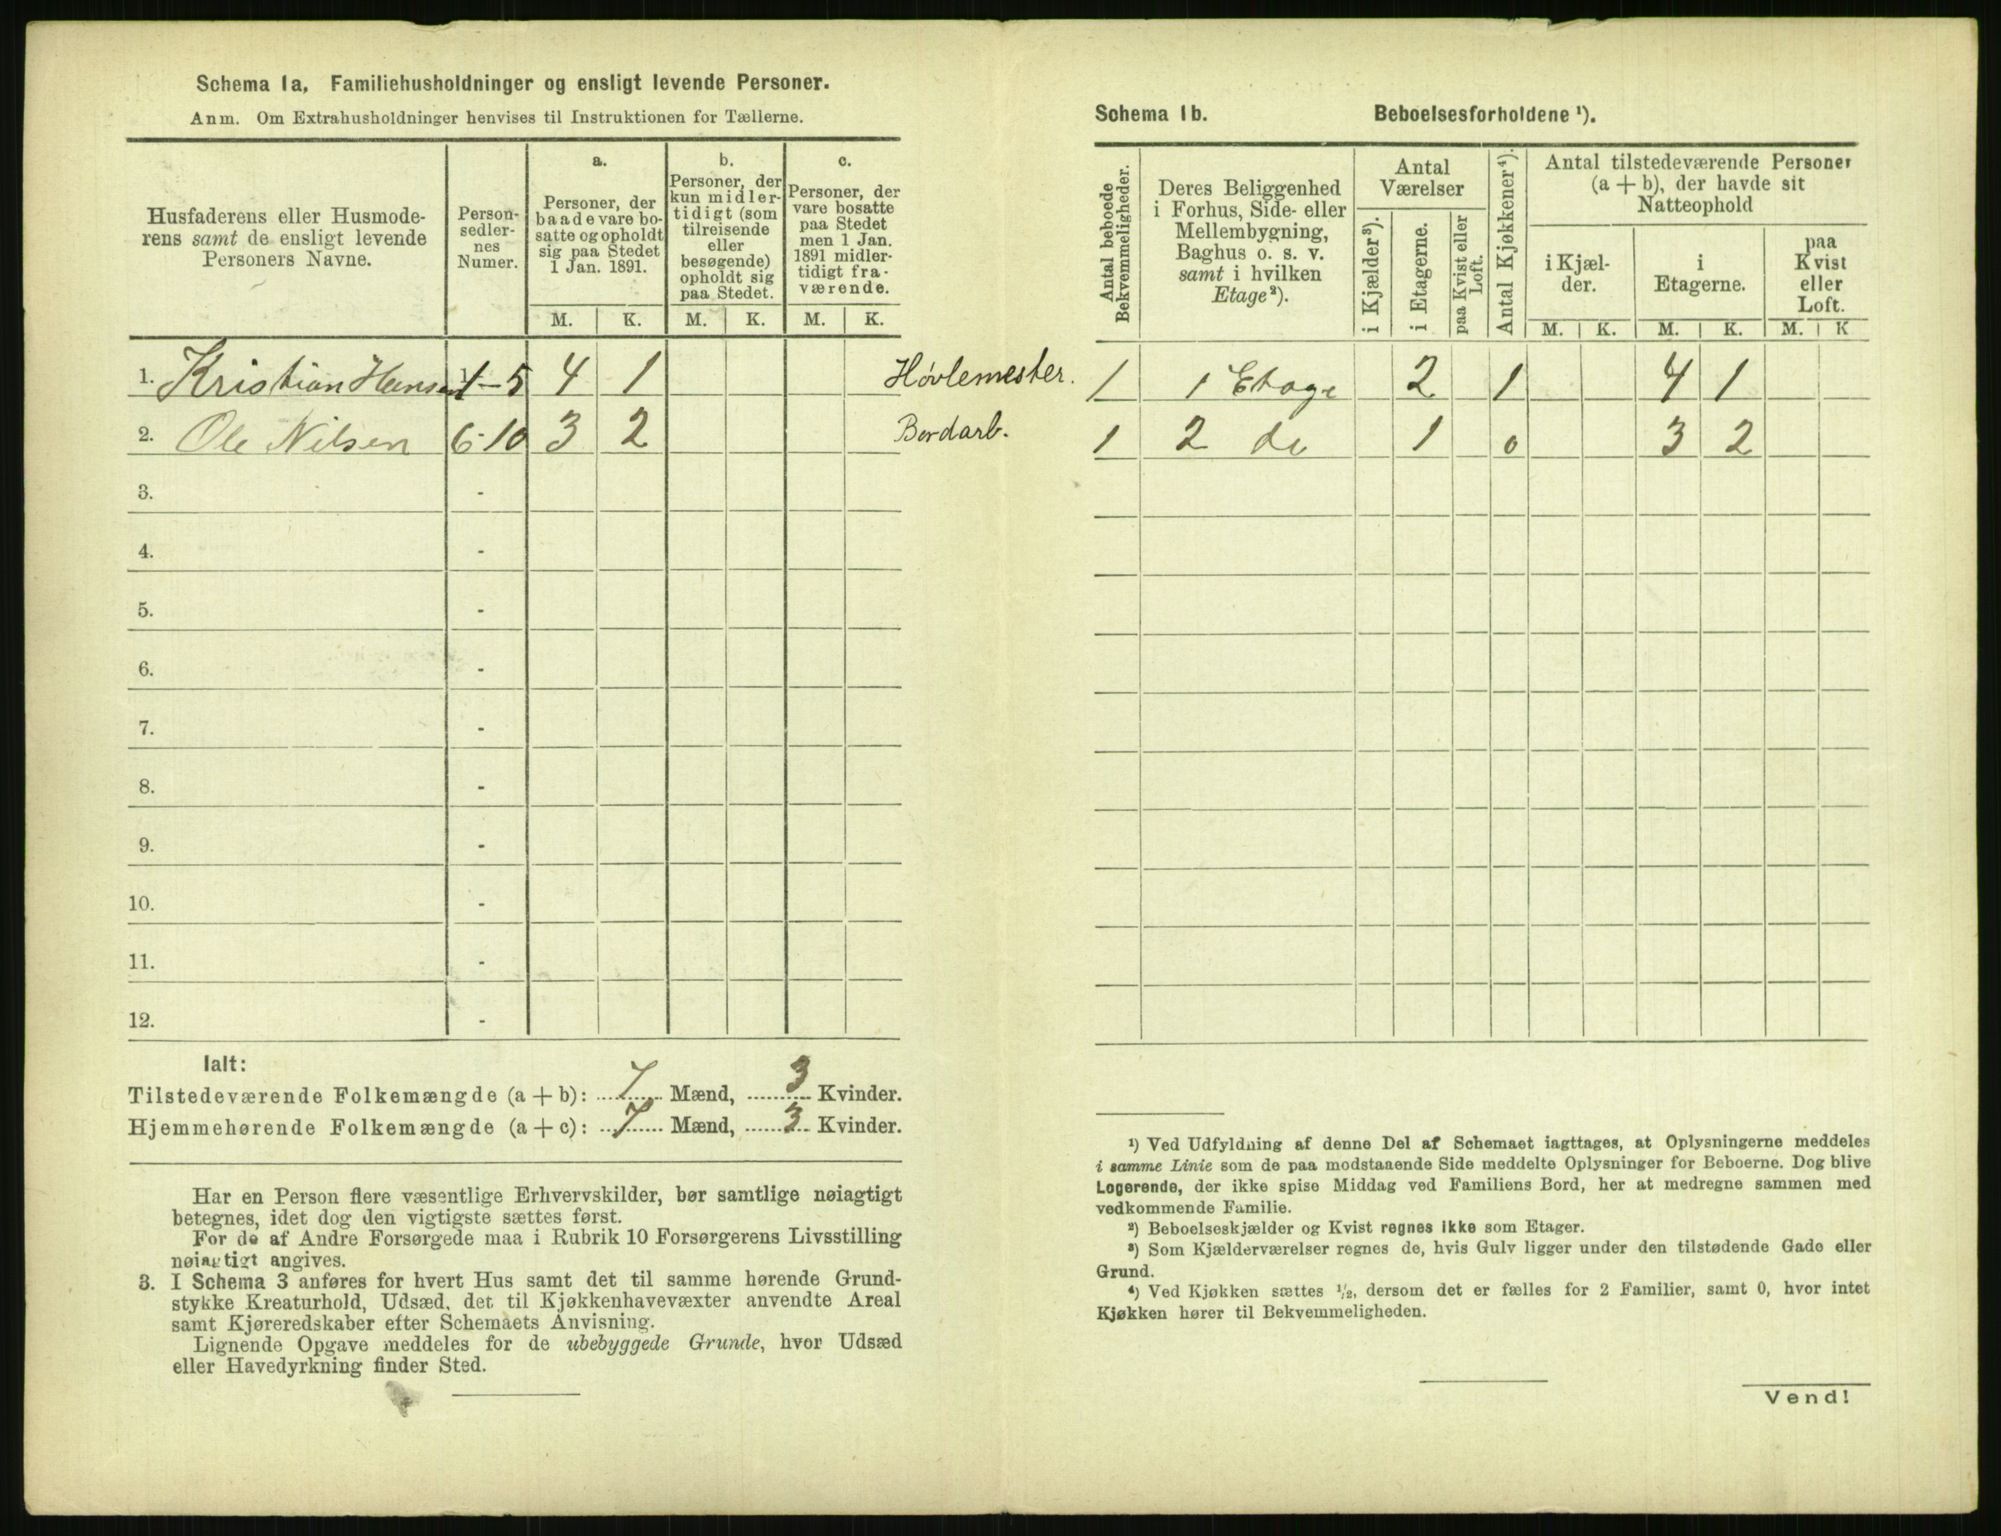 Schema 1a, Familiehusholdninger og ensligt levende Personer.
Anm. Om Extrahusholdninger henvises til Instruktionen for Tællerne.
Husfaderens eller Husmode-
rens samt de ensligt levende
Personers Navne.
Person-
sedler-
nes
Numer.
a.
Personer, der
baade vare bo-
satte og opholdt
sig paa Stedet
1 Jan. 1891.
M. K.
b.
Personer, der
kun midler-
tidigt (som
tilreisende
eller
besøgende)
opholdt sig
paa Stedet.
M. K.
c.
Personer, der
vare bosatte
paa Stedet
men 1 Jan.
1891 midler-
tidigt fra-
værende.
M. K.
1. Kristian Hansen 1-5 4 1 Høvlemester.
2. Ole Nilsen 6-10 3 2 Bordarb.
3. -
4. -
5. -
6. -
7. -
8. -
9. -
10. -
11. -
12. -
Ialt:
Tilstedeværende Folkemængde (a + b): 7 Mænd, 3 Kvinder.
Hjemmehørende Folkemængde (a + c): 7 Mænd, 3 Kvinder.
Har en Person flere væsentlige Erhvervskilder, bør samtlige nøiagtigt
betegnes, idet dog den vigtigste sættes først.
For de af Andre Forsørgede maa i Rubrik 10 Forsørgerens Livsstilling
nøiagtigt angives.
3. I Schema 3 anføres for hvert Hus samt det til samme hørende Grund-
stykke Kreaturhold, Udsæd, det til Kjøkkenhavevæxter anvendte Areal
samt Kjøreredskaber efter Schemaets Anvisning.
Lignende Opgave meddeles for de ubebyggede Grunde, hvor Udsæd
eller Havedyrkning finder Sted.
Schema 1b. Beboelsesforholdene ¹).
Antal beboede
Bekvemmeligheder.
Deres Beliggenhed
i Forhus, Side- eller
Mellembygning,
Baghus o. s. v.
samt i hvilken
Etage²).
Antal
Værelser
i Kjælder³).
i Etagerne.
paa Kvist eller
Loft.
Antal Kjøkkener⁴).
Antal tilstedeværende Personer
(a + b), der havde sit
Natteophold
i Kjæl-
der.
M. K.
i
Etagerne.
M. K.
paa
Kvist
eller
Loft.
M. K
1 1 Etage 2 1 4 1
1 2 do 1 0 3 2
¹) Ved Udfyldning af denne Del af Schemaet iagttages, at Oplysningerne meddeles
i samme Linie som de paa modstaaende Side meddelte Oplysninger for Beboerne. Dog blive
Logerende, der ikke spise Middag ved Familiens Bord, her at medregne sammen med
vedkommende Familie.
²) Beboelseskjælder og Kvist regnes ikke som Etager.
³) Som Kjælderværelser regnes de, hvis Gulv ligger under den tilstødende Gade eller
Grund.
⁴) Ved Kjøkken sættes ½, dersom det er fælles for 2 Familier, samt 0, hvor intet
Kjøkken hører til Bekvemmeligheden.
Vend!